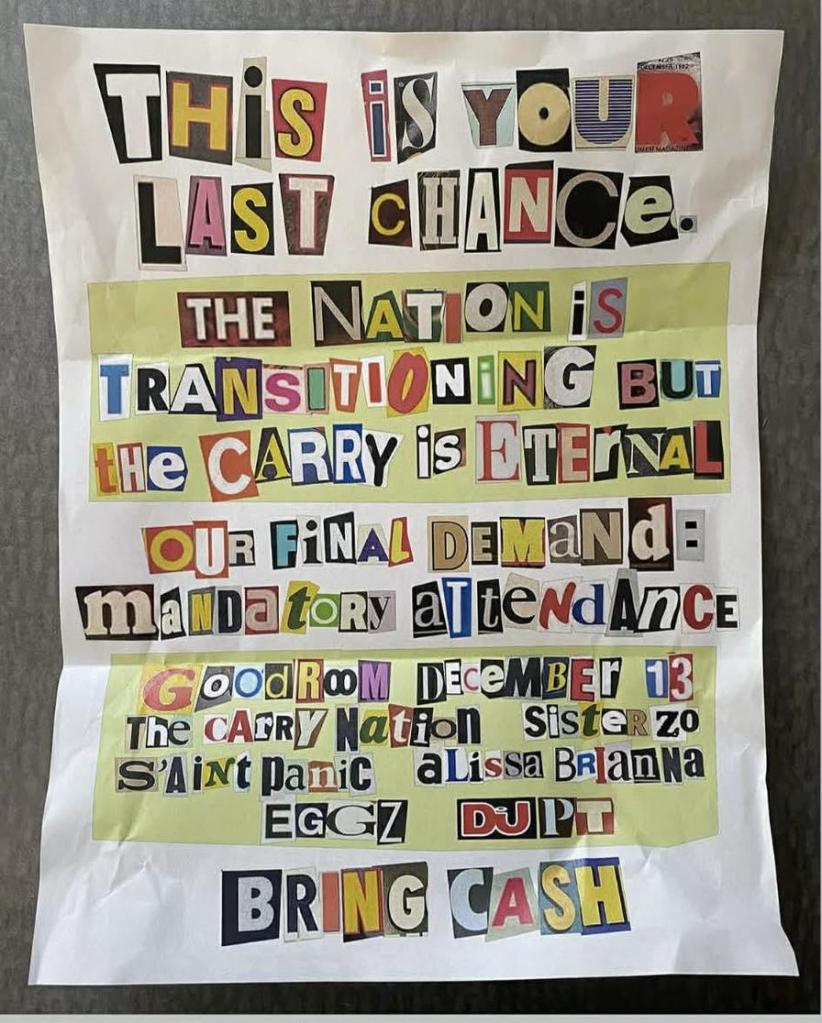 THiS iS YOUR
LAST CHANCe.
THE NATiON iS
TRANSiTiONiNG BUT
tHe CARRY is ETErNAL
OUR FiNAL DEMaNd:
maNDatORy aTtendAnCE
GoodRooM DECeMBEr 13
The CARRY Nation SisteR zo
S'AiNt panic aLissa BRIanNa
EGGZ DJ PT
BRING CASH